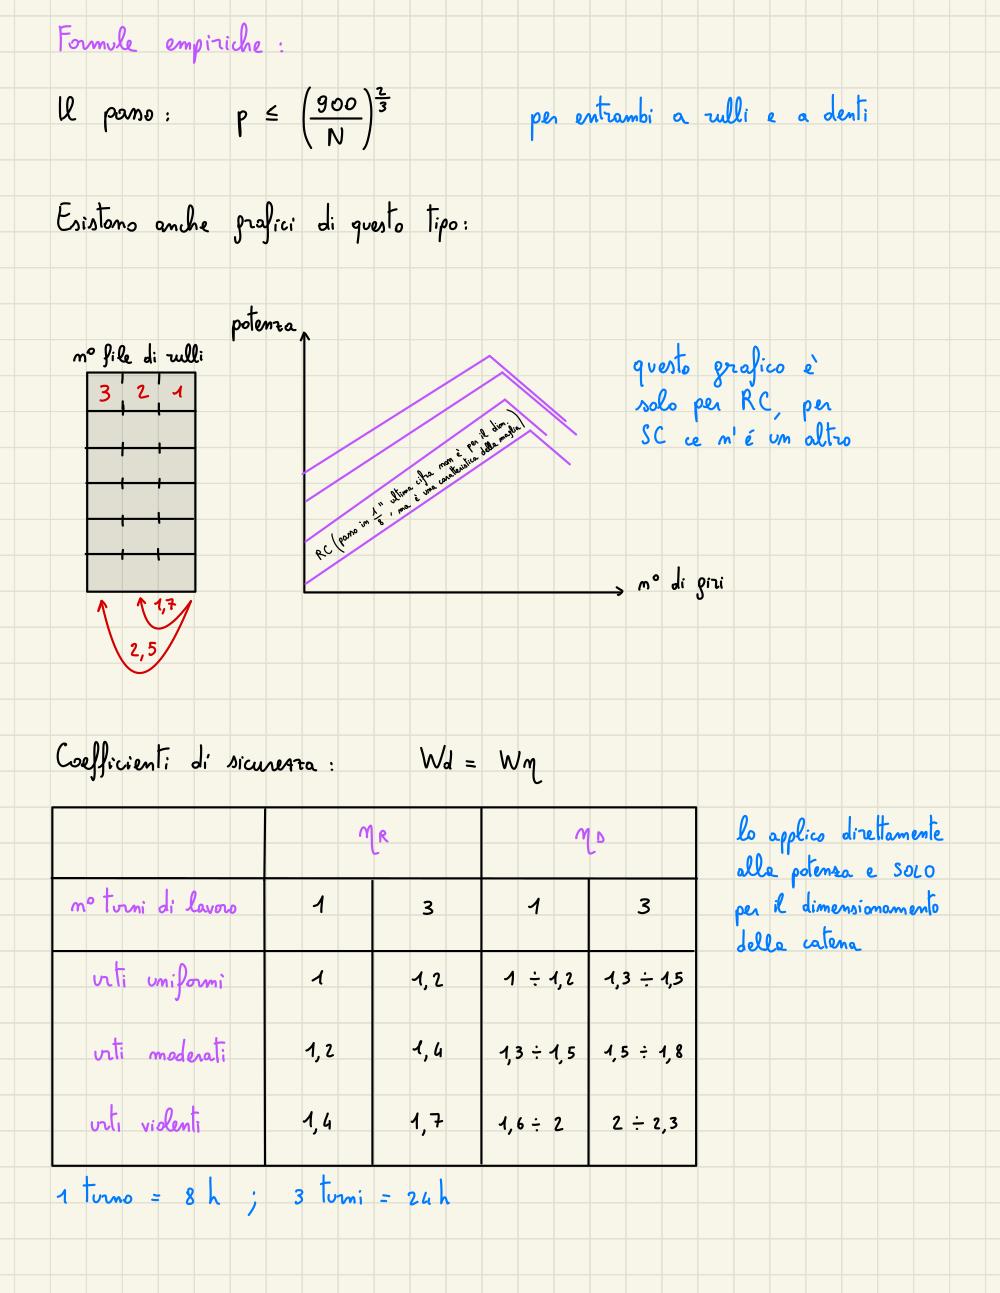 Formule empiriche :
Il passo : p ≤ (900/N)^(2/3) per entrambi a rulli e a denti
Esistono anche grafici di questo tipo :
potenza
n° file di rulli
3 2 1
1,7
2,5
RC (passo in 1/8" ultima cifra non è per il dim.
, ma è una caratteristica della maglia)
n° di giri
questo grafico è
solo per RC, per
SC ce n'é un altro
Coefficienti di sicurezza : Wd = Wη
ηR ηD
n° turni di lavoro 1 3 1 3
urti uniformi 1 1,2 1 ÷ 1,2 1,3 ÷ 1,5
urti moderati 1,2 1,4 1,3 ÷ 1,5 1,5 ÷ 1,8
urti violenti 1,4 1,7 1,6 ÷ 2 2 ÷ 2,3
lo applico direttamente
alla potenza e SOLO
per il dimensionamento
della catena
1 turno = 8 h ; 3 turni = 24 h